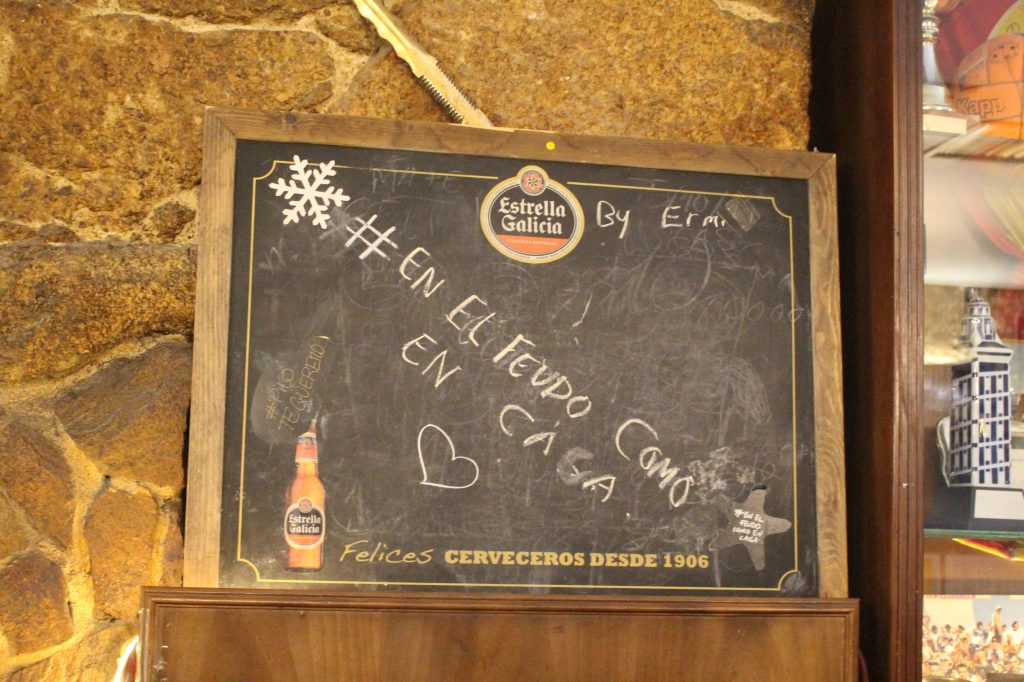 Estrella
Galicia
By Ermi
#EN EL FEUDO COMO
EN CASA
#PIVO
TEQUEREMO
Estrella
Galicia
#EN EL
FEUDO
COMO EN
CASA
Felices CERVECEROS DESDE 1906
Kapp